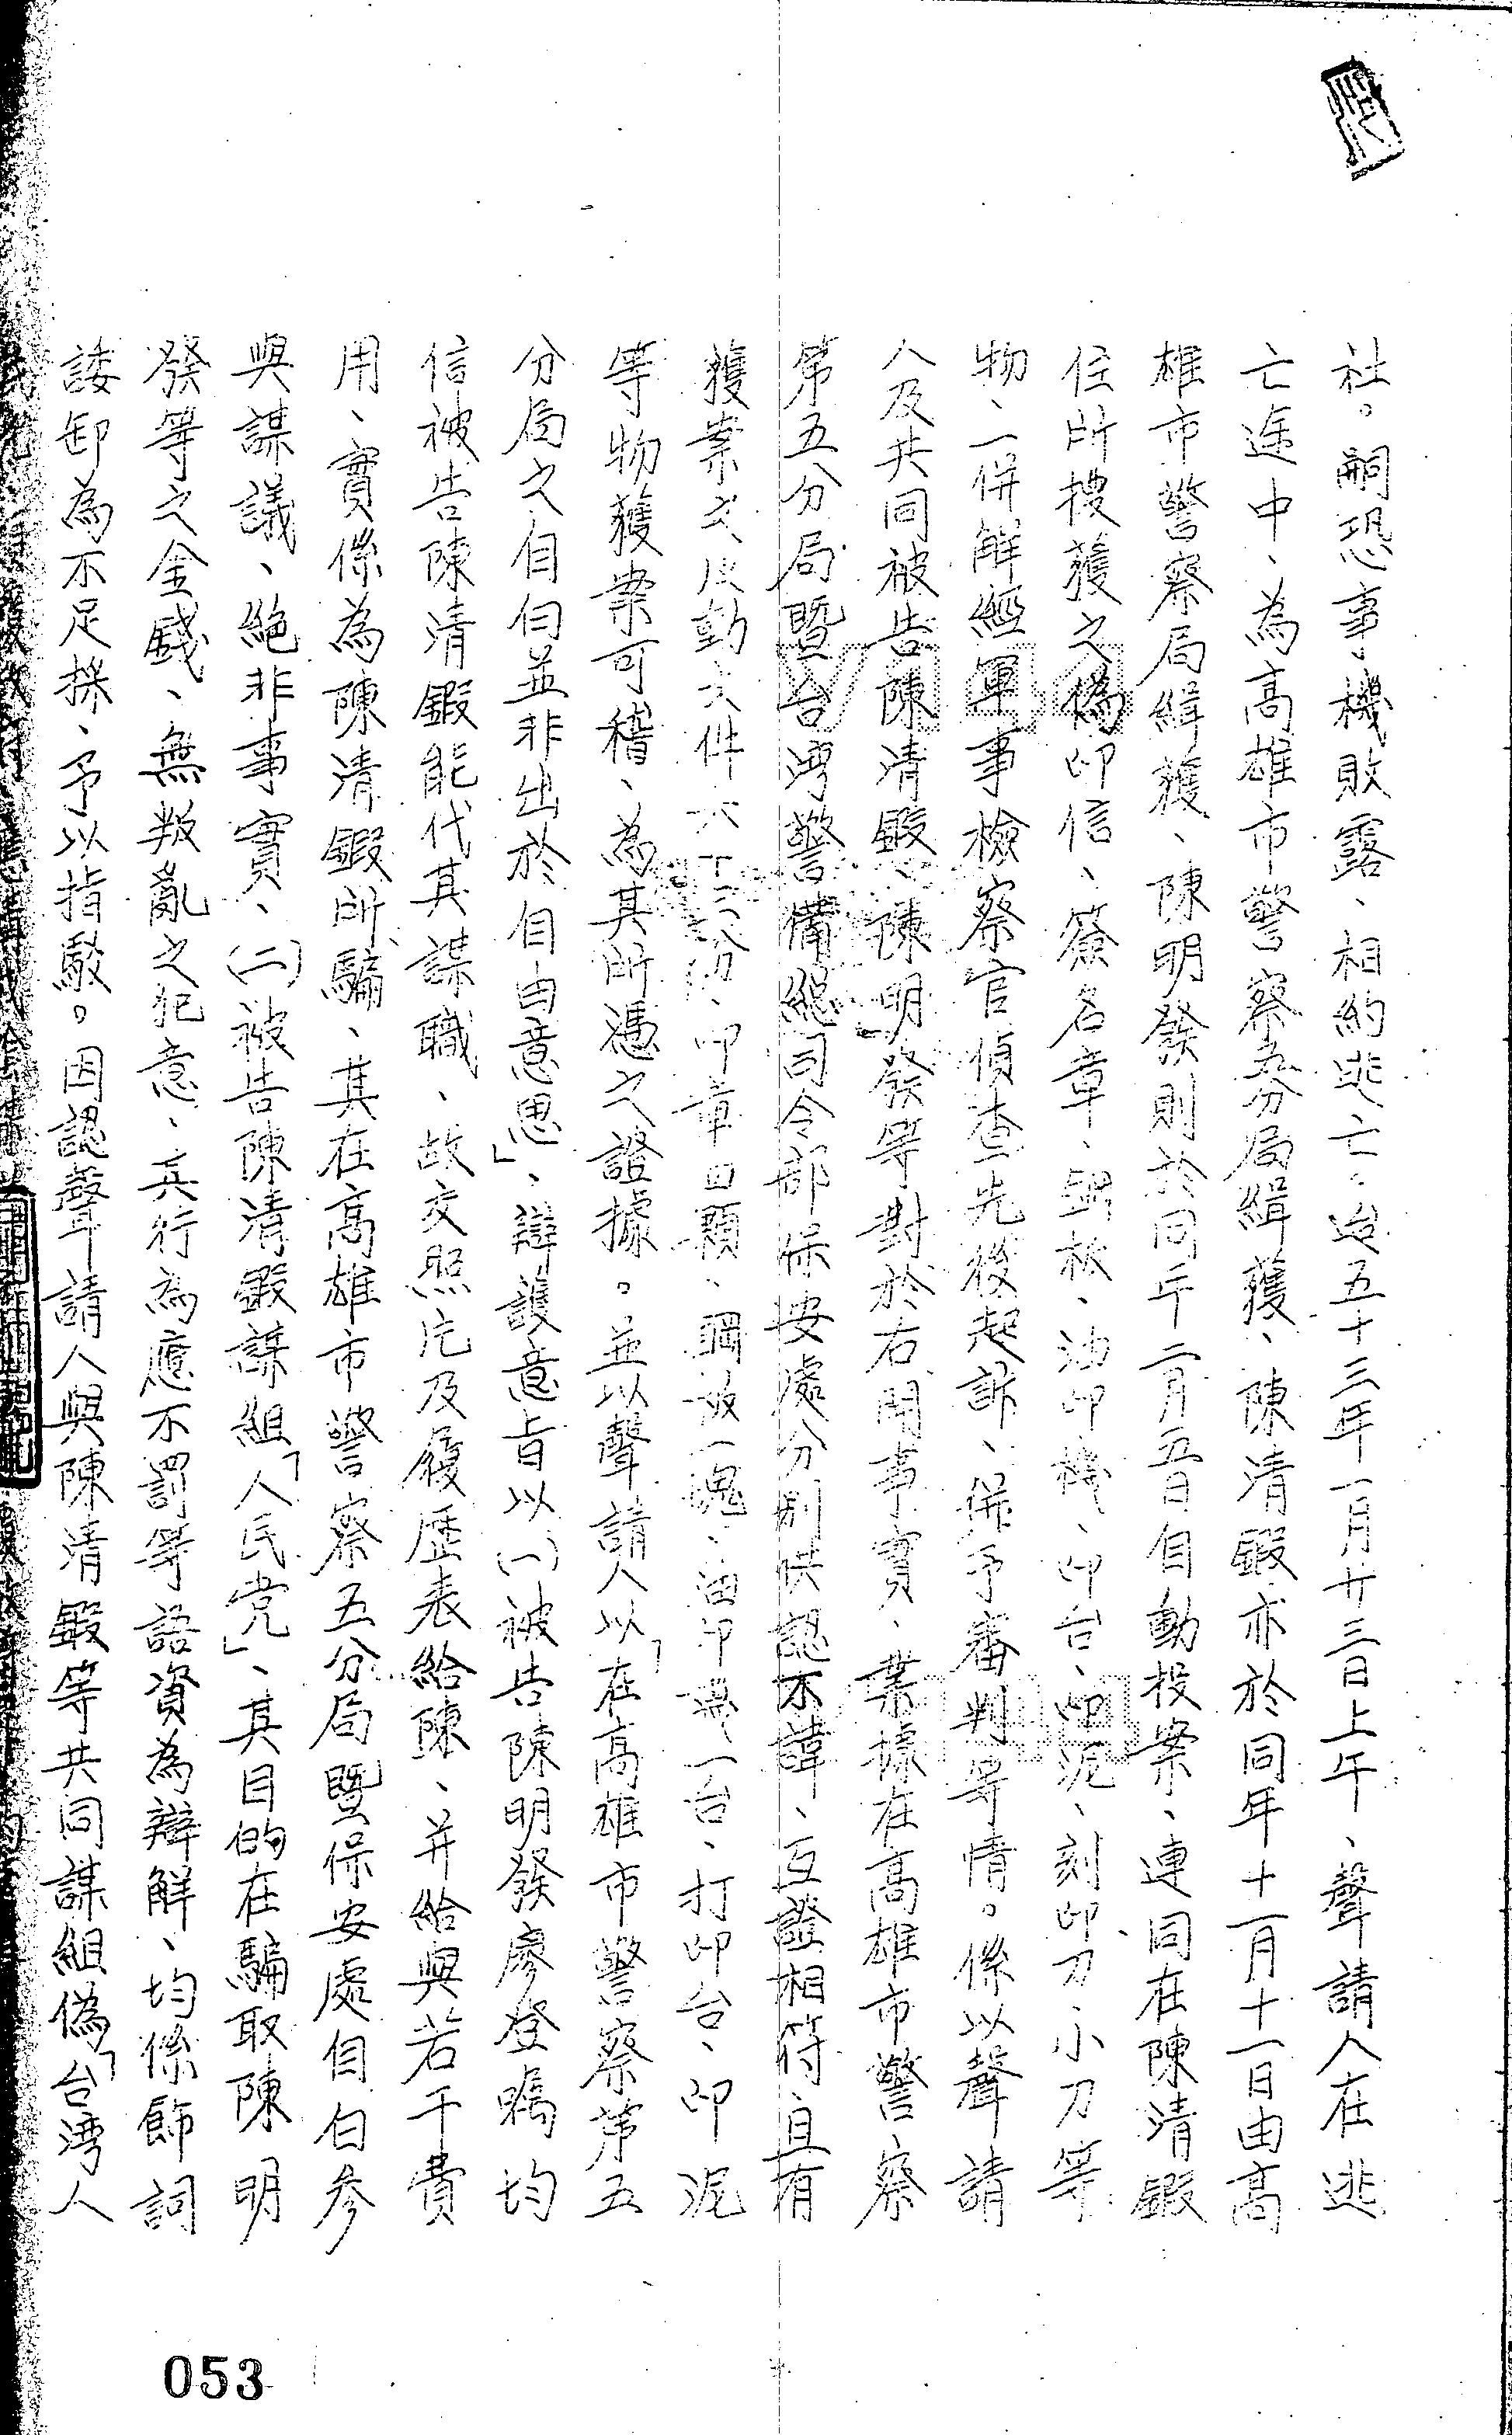 社。嗣恐事機敗露、相約逃亡。迨五十三年一月廿三日上午、聲請人在逃
亡途中、為高雄市警察五分局緝獲、陳清鍛亦於同年十一月十一日由高
雄市警察局緝獲、陳明發則於同年二月五日自動投案、連同在陳清鍛
住所搜獲之偽印信、簽名章、鋼板、油印機、印台、印泥、刻印刀、小刀等
物、一併解經軍事檢察官偵查先後起訴、併予審判等情。係以聲請
人及共同被告陳清鍛、陳明發等對於右開事實、業據在高雄市警察
第五分局暨台灣警備總司令部保安處分別供認不諱、互證相符、且有
獲案之反動文件六十三份、印章四顆、鋼板一塊、油印機一台、打印台、印泥
等物獲案可稽、為其所憑之證據。並以聲請人以「在高雄市警察第五
分局之自白並非出於自由意思」、辯護意旨以(一)被告陳明發廖登囑均
信被告陳清鍛能代其謀職、故交照片及履歷表給陳、并給與若干費
用、實係為陳清鍛所騙、其在高雄市警察五分局暨保安處自白參
與謀議、絕非事實、(二)被告陳清鍛謀組「人民党」、其目的在騙取陳明
發等之金錢、無叛亂之犯意、其行為應不罰等語資為辯解、均係飾詞
諉卸為不足採、予以指駁。因認聲請人與陳清鍛等共同謀組偽「台湾人
053